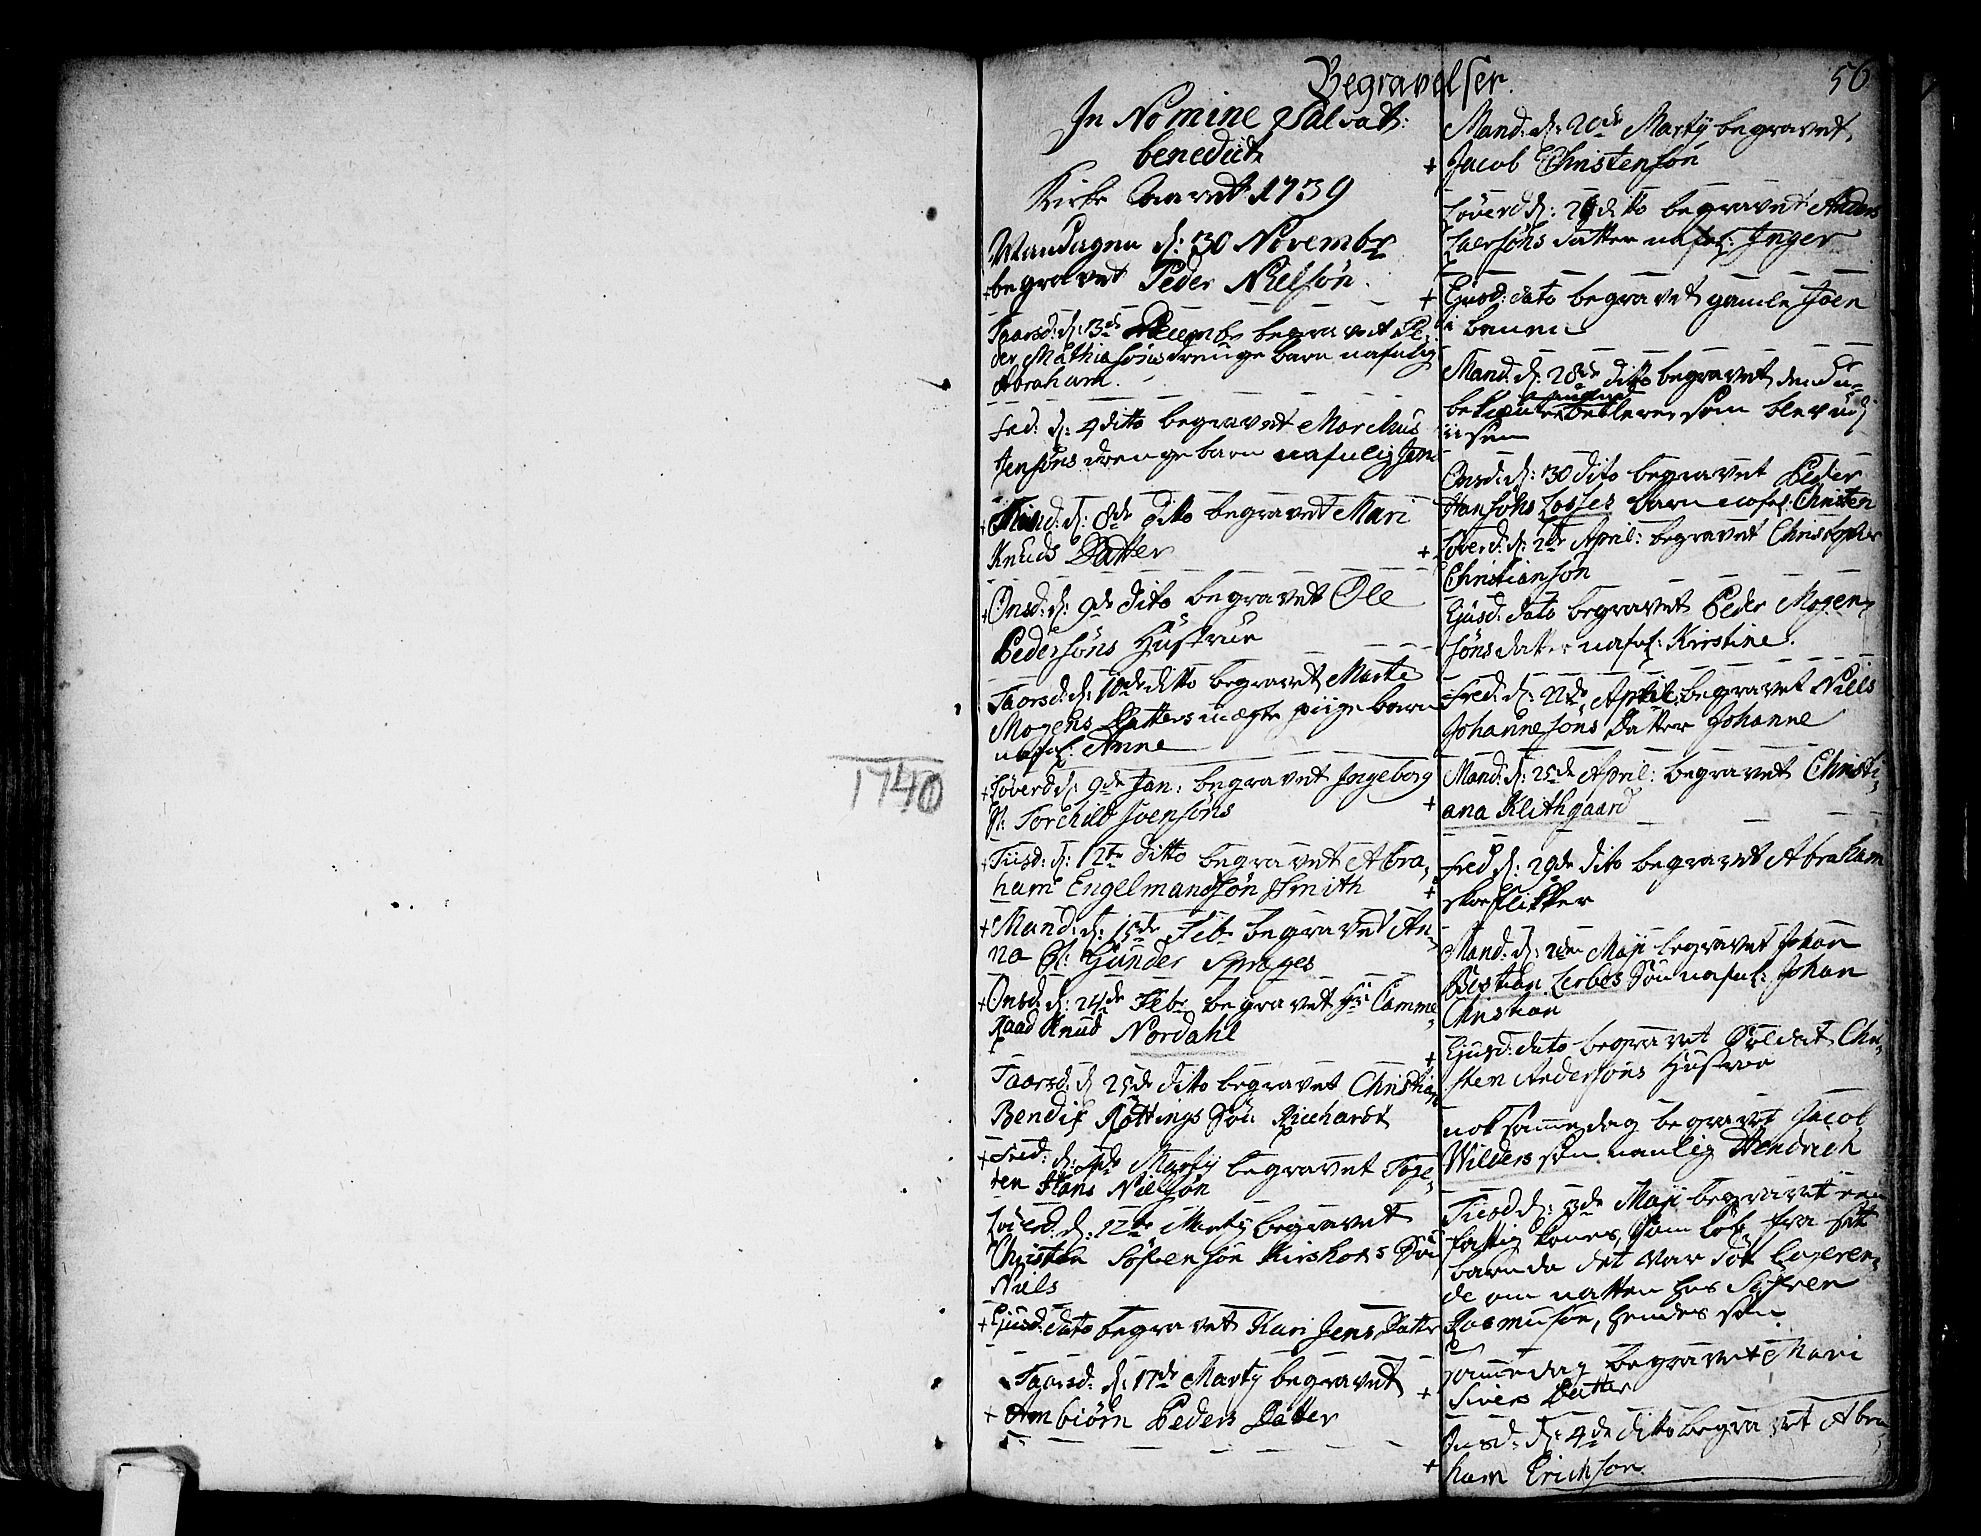 Begravelser.
56
In Nomine Salvat:
benedict
Kirke Aaret 1739
Mandagen d: 30 Novembr
+ begravet Peder Nielsøn.
Taorsd: d: 3de Decembr begravet Pe-
der Mathiasøns drenge barn nafnlig
Abraham.
Fred: d: 4 dito begravet Marchus
Jensøns drenge barn nafnlig Jens
+ Tiisd: d: 8de ditto begravet Mari
Knuds Datter
+ Onsd: d: 9de dito begravet Ole
Pedersøns Hustrue
Taorsd: d: 10de ditto begravet Marte
Mogens Datters uægte piige barn
nafnl: Anne
1740
+ Løverd d: 9de Jan: begravet Ingeborg
Sl: Torchild Svensøns
+ Tiisd: d: 12te ditto begravet Abra-
ham Engelmandsøn Smith
+ Mand: d: 15de Feb: begravet An-
na Sl: Gunder Sprages
+ Onsd: d: 24de Feb: begravet Hr Camme-
Raad Knud Nordahl
Taorsd: d: 25de dito begravet Christian
Bendix Røttings Søn Richardt
+ Fred: d: 4de Martij begravet Toge-
ten Hans Nielsøn
Løverd: d: 12te Martij begravet
Christen Sørensøn Kirshots Søn
Niels
+ Ejusd: dato begravet Kari Jens Datter
Taorsd: d: 17de Martij begravet
+ Ambiørn Peders Datter
Mand: d: 20de Martij begravet
+ Jacob Christensøn
Løverd d: 26 ditto begravet Anders
Laersøns datter nafnl: Inger
+ Ejusd: dato begravet gamle Joen
i
Mand: d: 28de ditto begravet den u-
bekiente betlerer som blev
iisen
Onsd: d: 30 dito begravet Peder
Hansøns Losses barn nafnl: Christen
+ Løverd: d: 2de April: begravet Christopher
Christiansøn
Ejusd: dato begravet Peder Mogen-
søns datter nafnl: Kirstine.
Fred: d: 22de April: begravet Niels
Johannesøns Datter Johanne
Mand: d: 25de April: begravet Christi-
+ ana Klithgaard
Fred d: 29de dito begravet Abraham
+ skoeflikker
Mand: d: 2den Maji begravet Johan
Bestian Lerbes Søn nafnl: Johan
Christian
Ejusd: dato begravet Soldat Chri-
+ sten Andersøns Hustroe
nok samme dag begravet Jacob
Wilders søn nanlig Hendrich
Tiisd d: 3de Maji begravet een
fattig kones, som løb fra sit
barn da det var søt Logeren-
de om natten hos Søfren
Rasmusøn, hendes søn
samme dag begravet Mari
+ Sivers Datter
Onsd: d: 4de ditto begravet Abra-
+ ham Erichsøn